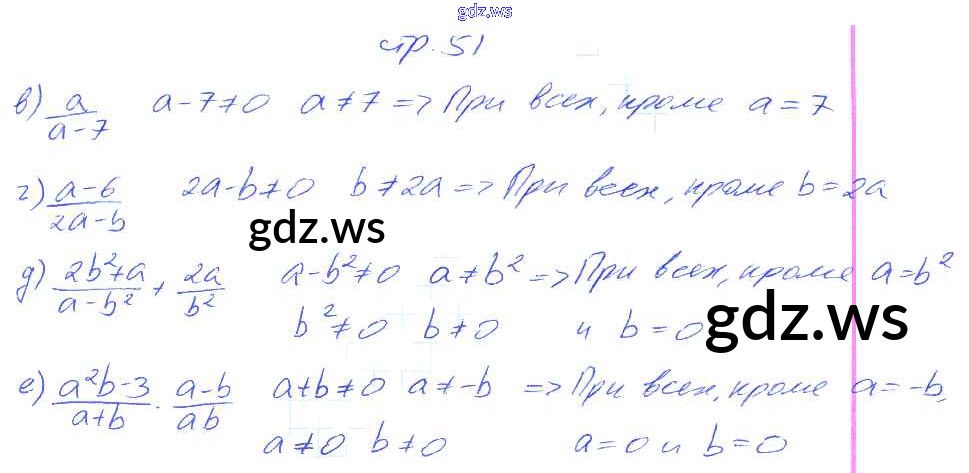 gdz.ws
стр. 51
в) a/(a-7) a-7≠0 a≠7 => При всех, кроме a=7
г) (a-6)/(2a-b) 2a-b≠0 b≠2a => При всех, кроме b=2a
gdz.ws
д) (2b²+a)/(a-b²) + 2a/b² a-b²≠0 a≠b² => При всех, кроме a=b²
b²≠0 b≠0 и b=0
gdz.ws
е) (a²b-3)/(a+b) · (a-b)/(ab) a+b≠0 a≠-b => При всех, кроме a=-b,
a≠0 b≠0 a=0 и b=0